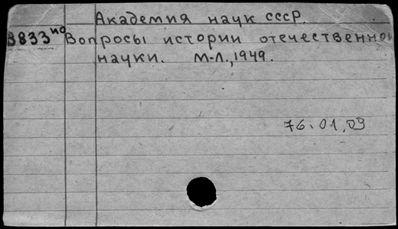 Академия наук СССР.
В833но Вопросы истории отечественной
науки. М-Л., 1949.
76.01.09